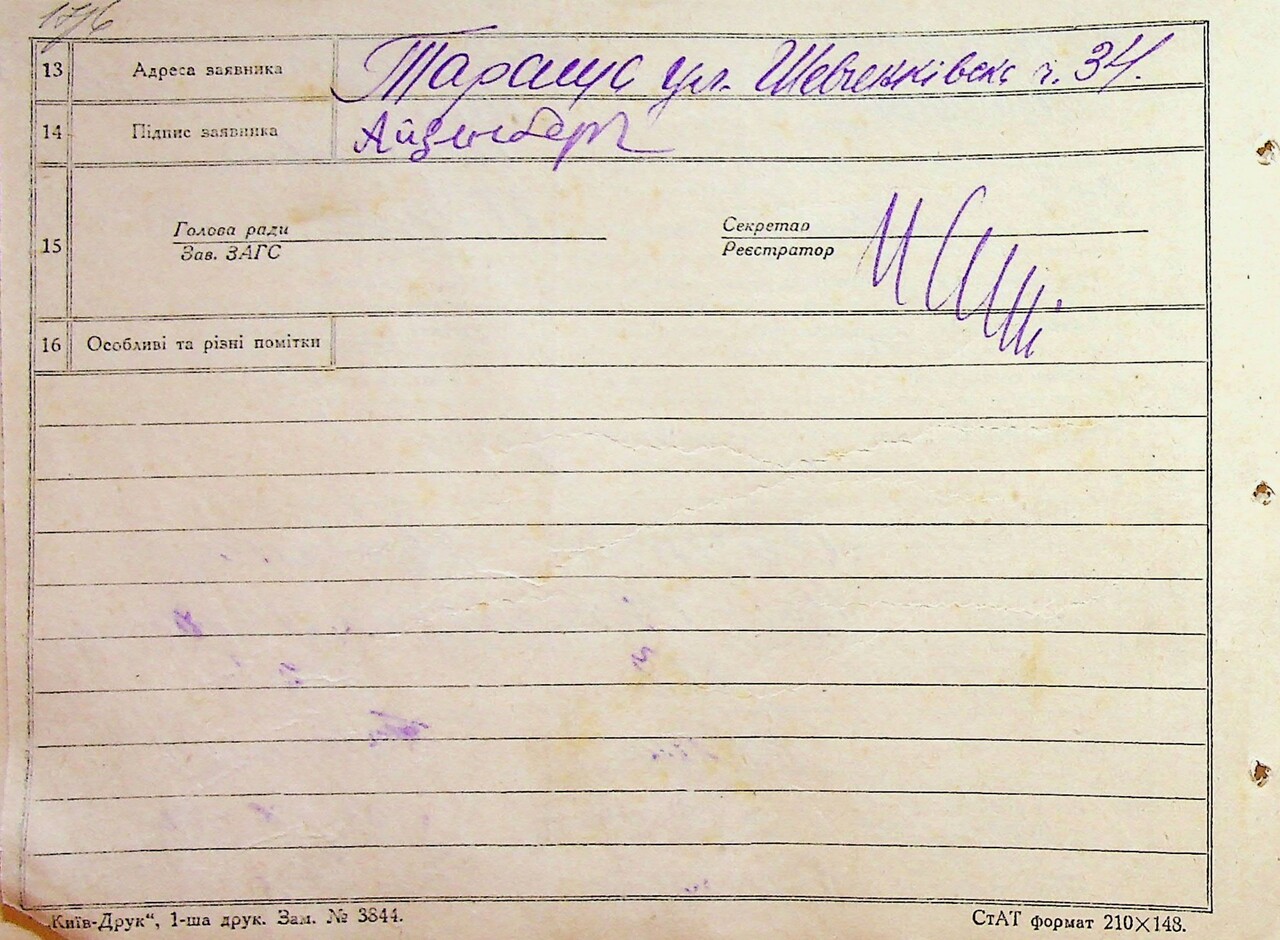 1776
13 Адреса заявника Тараща ул. Шевченківська ч. 34.
14 Підпис заявника Айзенберг
Голова ради Секретар
15
Зав. ЗАГС Реєстратор
16 Особливі та різні помітки
„Київ-Друк“, 1-ша друк. Зам. № 3844. СтАТ формат 210×148.